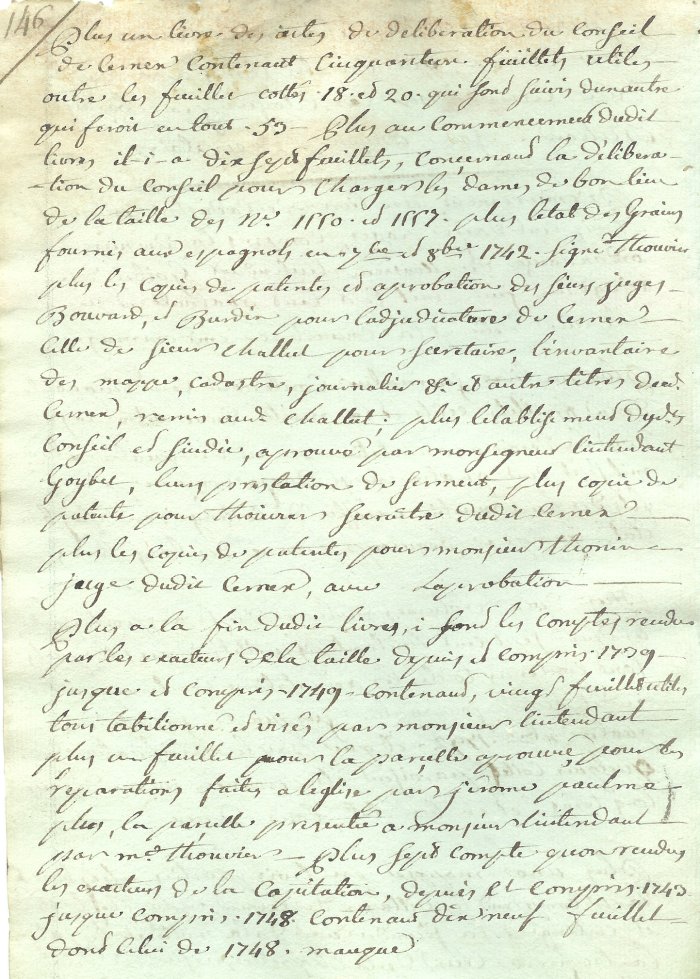 146
Plus un livre des actes de deliberation du Conseil
de Cernex Contenant Cinquanteun feuillets utiles
outre les feuillet cottés .18. et 20. qui sond suivis dun autre
qui feroit en tout .53 - Plus au Commencement dudit
livres il-i-a dix sept feuillets, Concernand la délibera-
-tion du Conseil pours Chargers les dames de bon lieu
de la taille des Nos. 1550. et 1557. plus l'etat des Grains
fournis aux espagnols en 7bre et 8bre 1742. signé Thouvier
plus les Copies de patentes et aprobation des sieurs juges
Bouvard, et Burdin pours ladjudicature de Cernex
Celle de sieur Challut pour secretaire, linvantaire
des mappe, cadastre, journalier &c. et autre titres dud.
Cernex, remis aud. Challut; plus letablissemend dyds
Conseil et sindic, aprouvé par monseigneur lintendant
Goybet, leurs prestation de serment, plus copie de
patente pour Thouviers secraitre dudit Cernex
plus les Copies de patentes pours monsieur Thonin
juge dudit Cernex, avec Laprobation
Plus a la fin dudit livres, i sond les Comptes rendus
par les exacteurs de la taille depuis et Compris .1739
jusque et Compris .1749. Contenand, vingt feuillets utiles
tous tabilionné et visés par monsieur lintendant
plus un feuillet pour la parcelle aprouvé pours les
reparations faites a leglise pars jérome paulme
plus, la parcelle presentée a monsieur lintendant
par me. Thouvier - Plus sept compte quon rendus
les exacteurs de la Capitation, depuis et Compris .1743
jusque Compris .1748. Contenand dix neuf feuillet
dond Celui de 1748. manque